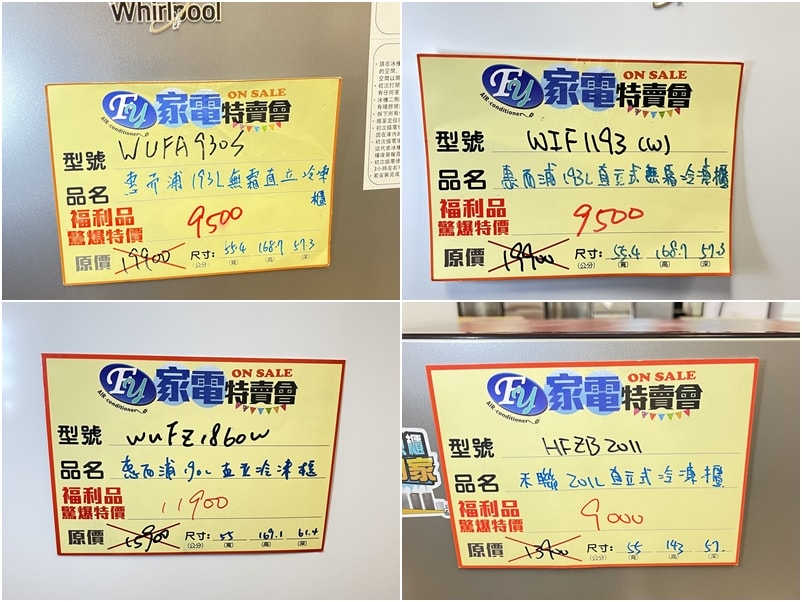 Whirlpool
FY 家電特賣會 ON SALE
AIR-conditioner
型號 WUFA930S
品名 惠而浦193L無霜直立冷凍櫃
福利品
驚爆特價 9500
原價 19900 尺寸: 55.4 168.7 57.3
(公分) (寬) (高) (深)
FY 家電特賣會 ON SALE
AIR-conditioner
型號 WIF1193(W)
品名 惠而浦193L直立式無霜冷凍櫃
福利品
驚爆特價 9500
原價 19900 尺寸: 55.4 168.7 57.3
(公分) (寬) (高) (深)
FY 家電特賣會 ON SALE
AIR-conditioner
型號 WUFZ1860W
品名 惠而浦190L直立冷凍櫃
福利品
驚爆特價 11900
原價 15900 尺寸: 55 169.1 61.4
(公分) (寬) (高) (深)
FY 家電特賣會 ON SALE
AIR-conditioner
型號 HFZB2011
品名 禾聯201L直立式冷凍櫃
福利品
驚爆特價 9000
原價 13900 尺寸: 55 143 57.
(公分) (寬) (高) (深)